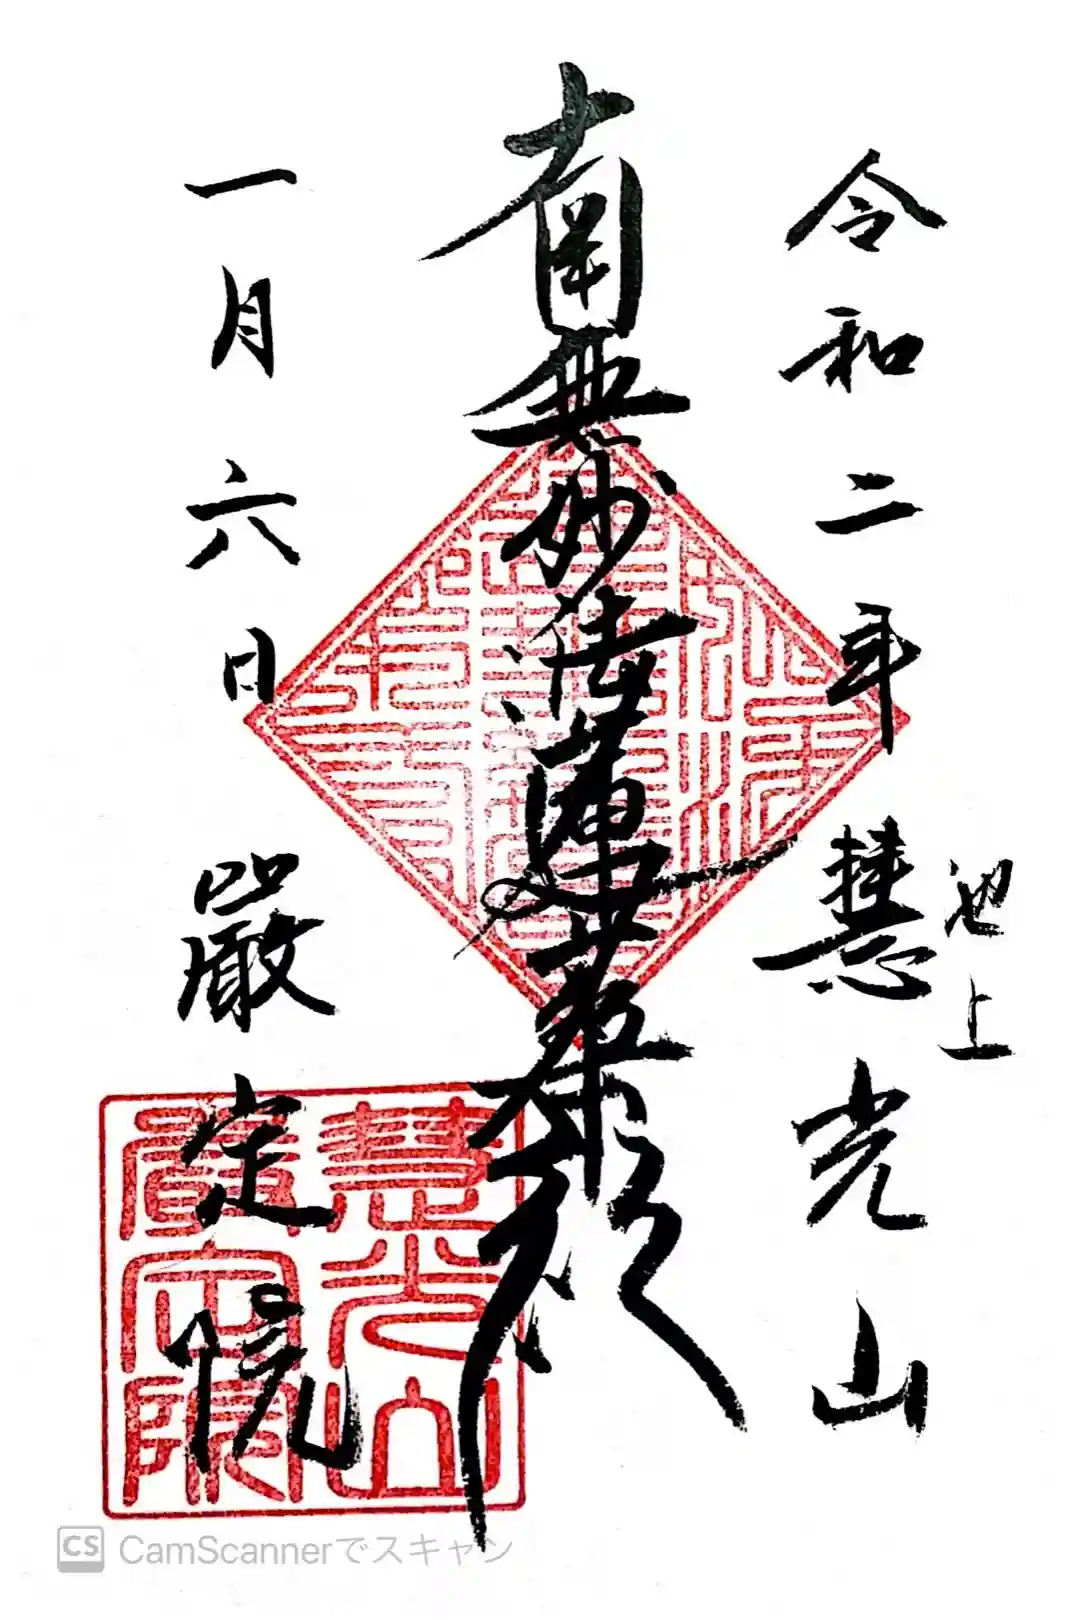 令和二年
池上
慧光山
南無妙法蓮華経
一月六日
嚴定院
慧光山
嚴定院
CS CamScannerでスキャン